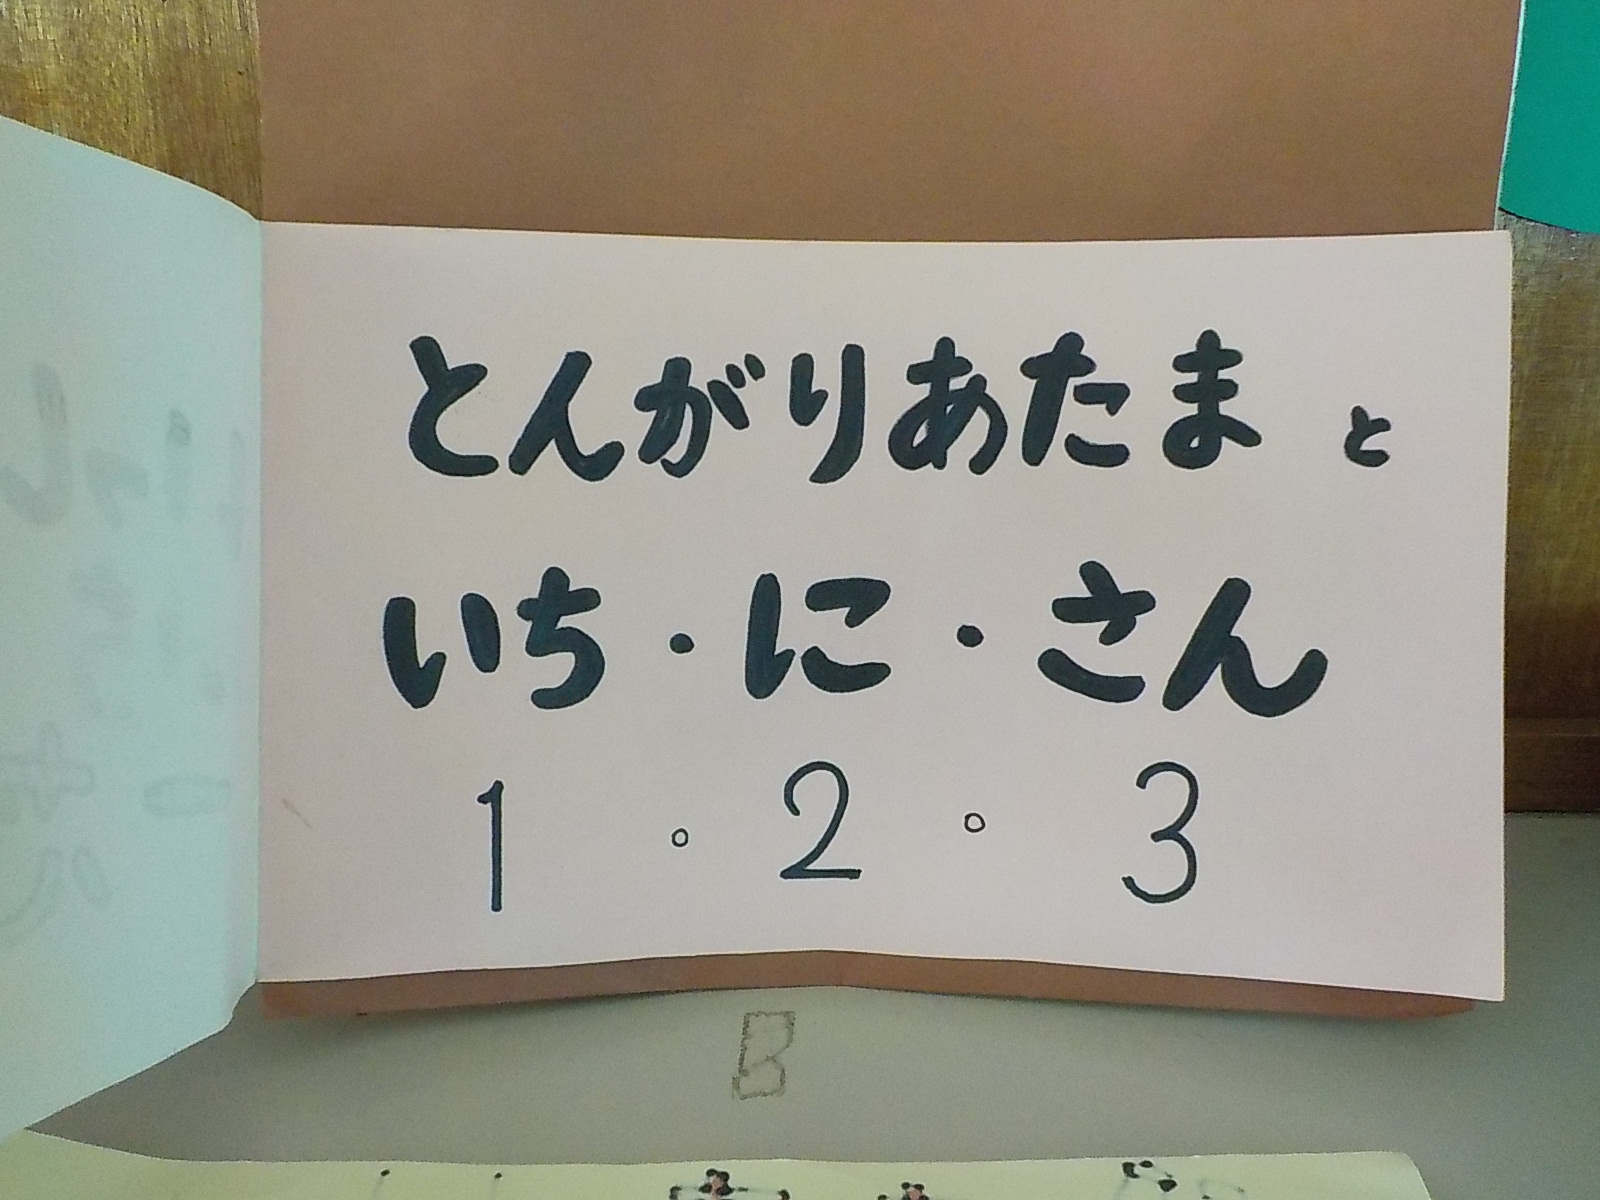 とんがりあたま と
いち・に・さん
1。2。3